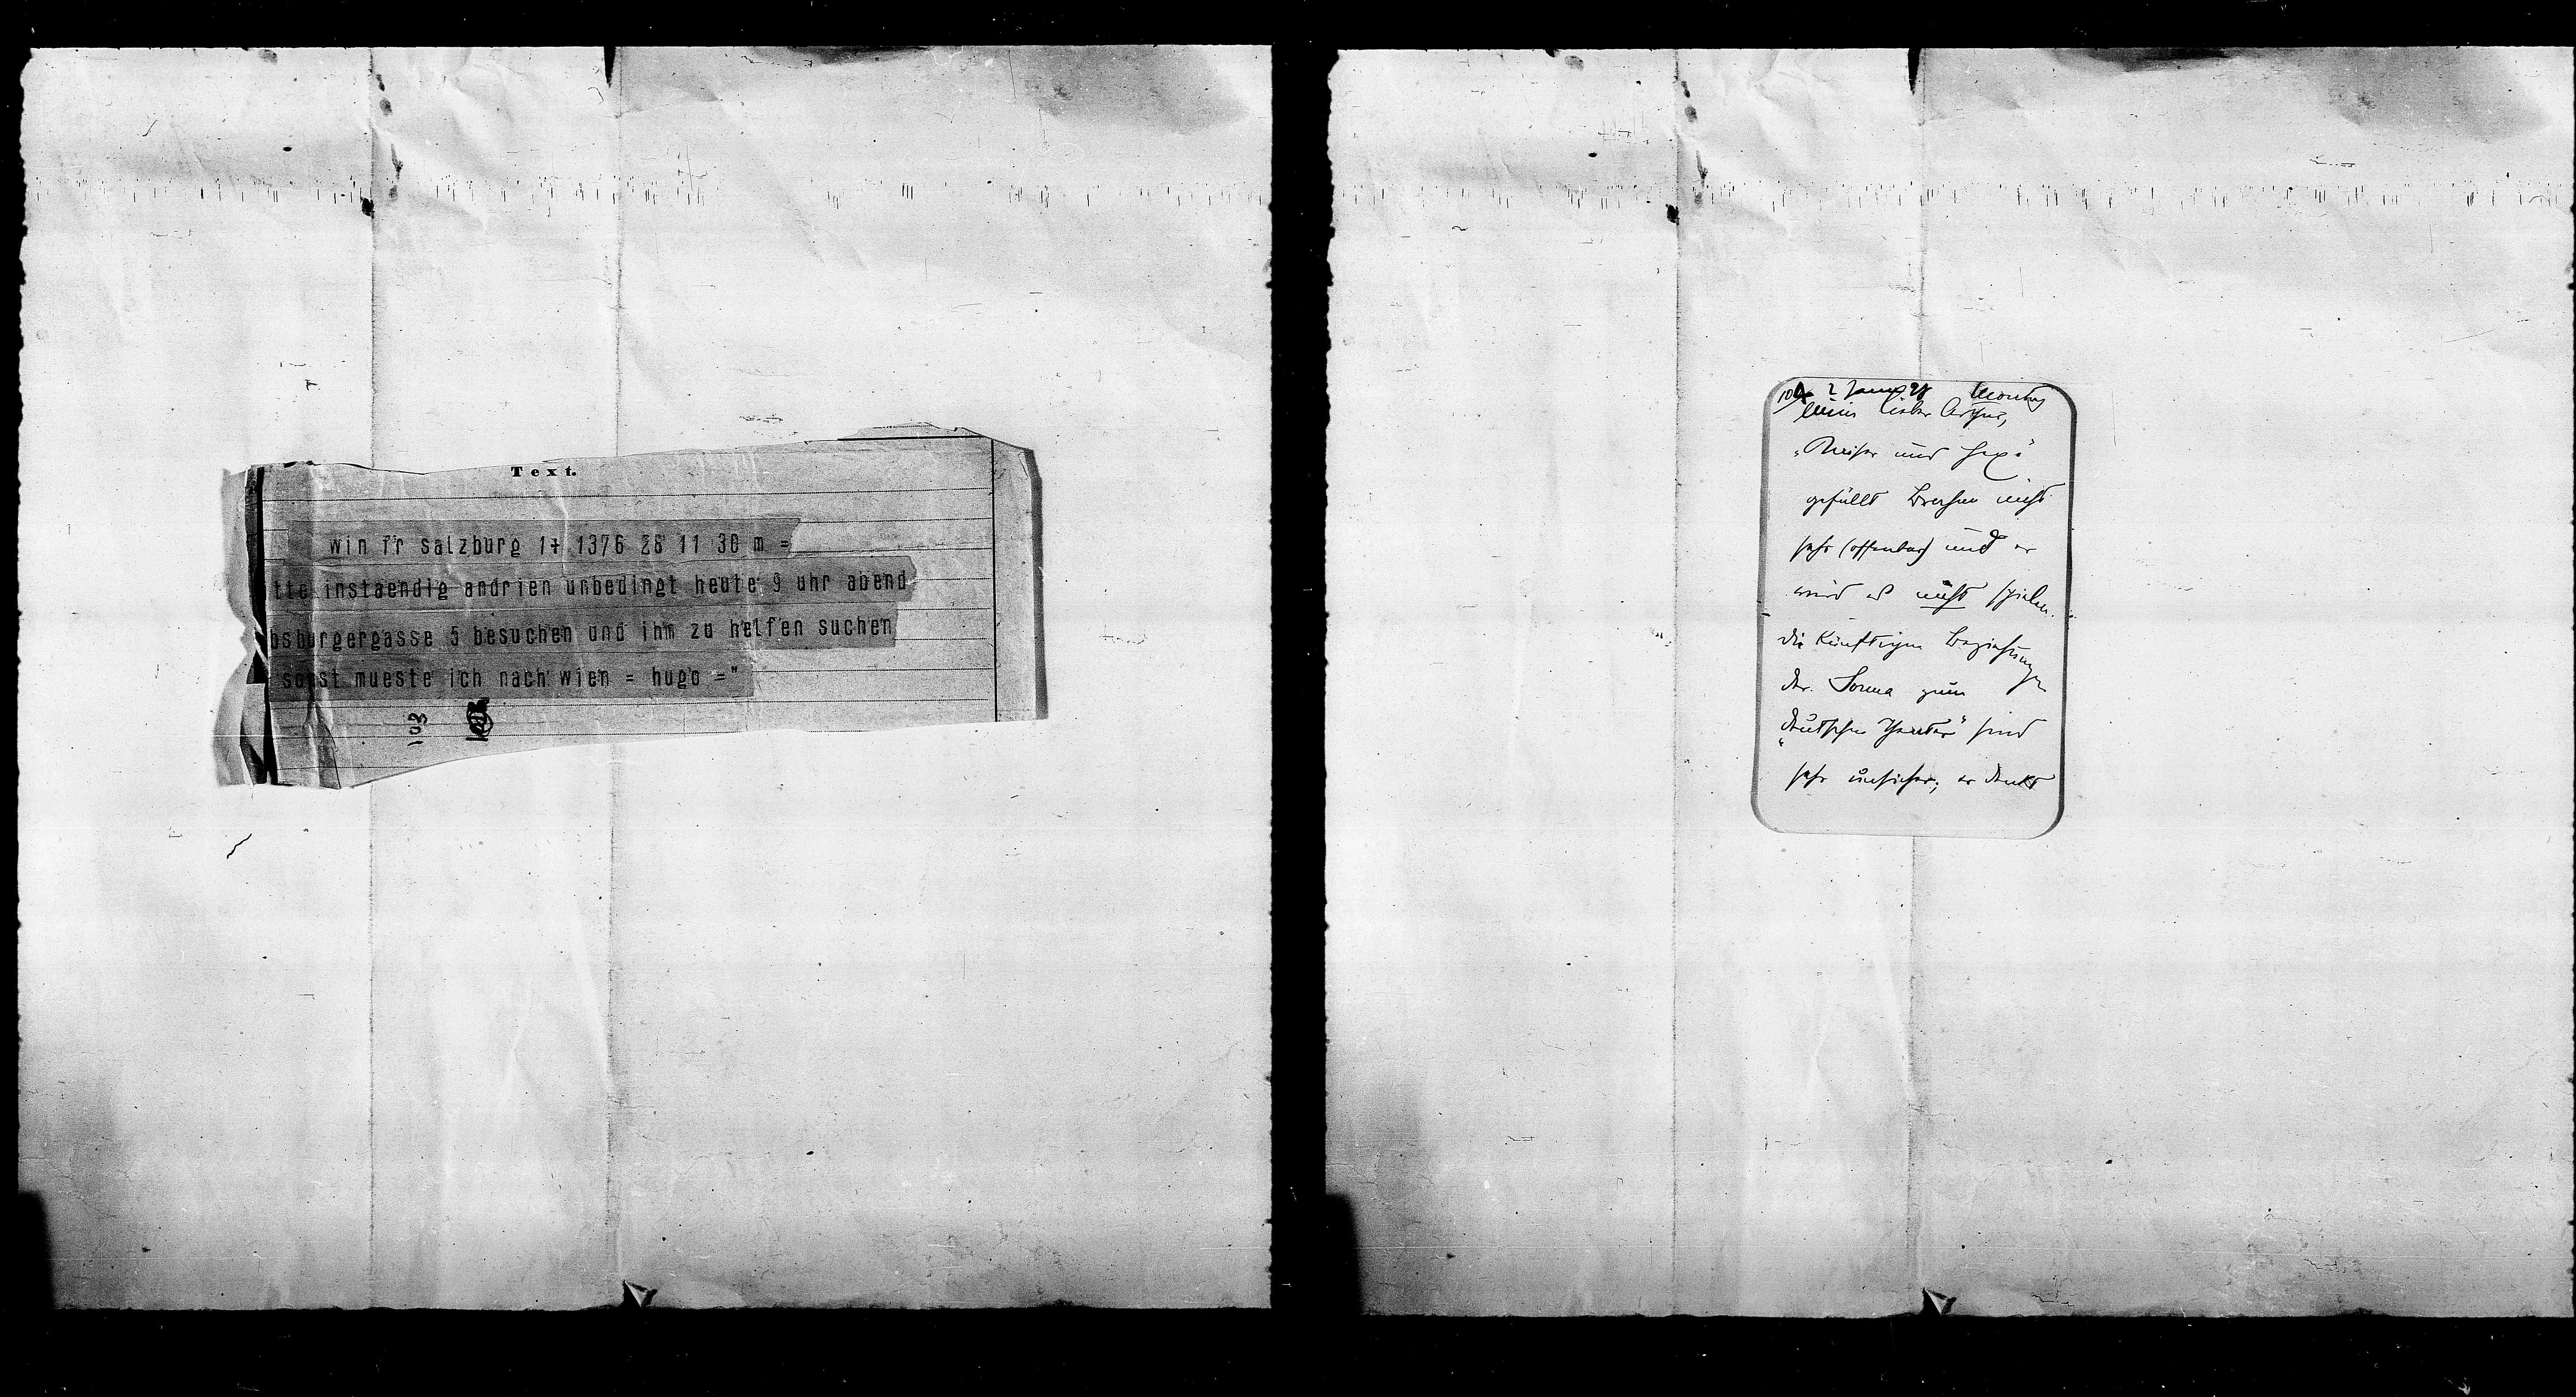 Text.
win fr salzburg 1+ 1376 28 11 30 m =
tte instaendig andrien unbedingt heute 9 uhr abend
bsburgergasse 5 besuchen und ihm zu helfen suchen
sonst mueste ich nach wien = hugo ="
103
104 2 Jann 98 Montag
mein lieber Arthur,
gefällt Brahm nicht
sehr (offenbar) und er
wird es nicht spielen.
die künftigen Beziehungen
der Sorma zum
„deutschen Theater" sind
sehr unsicher; er denkt